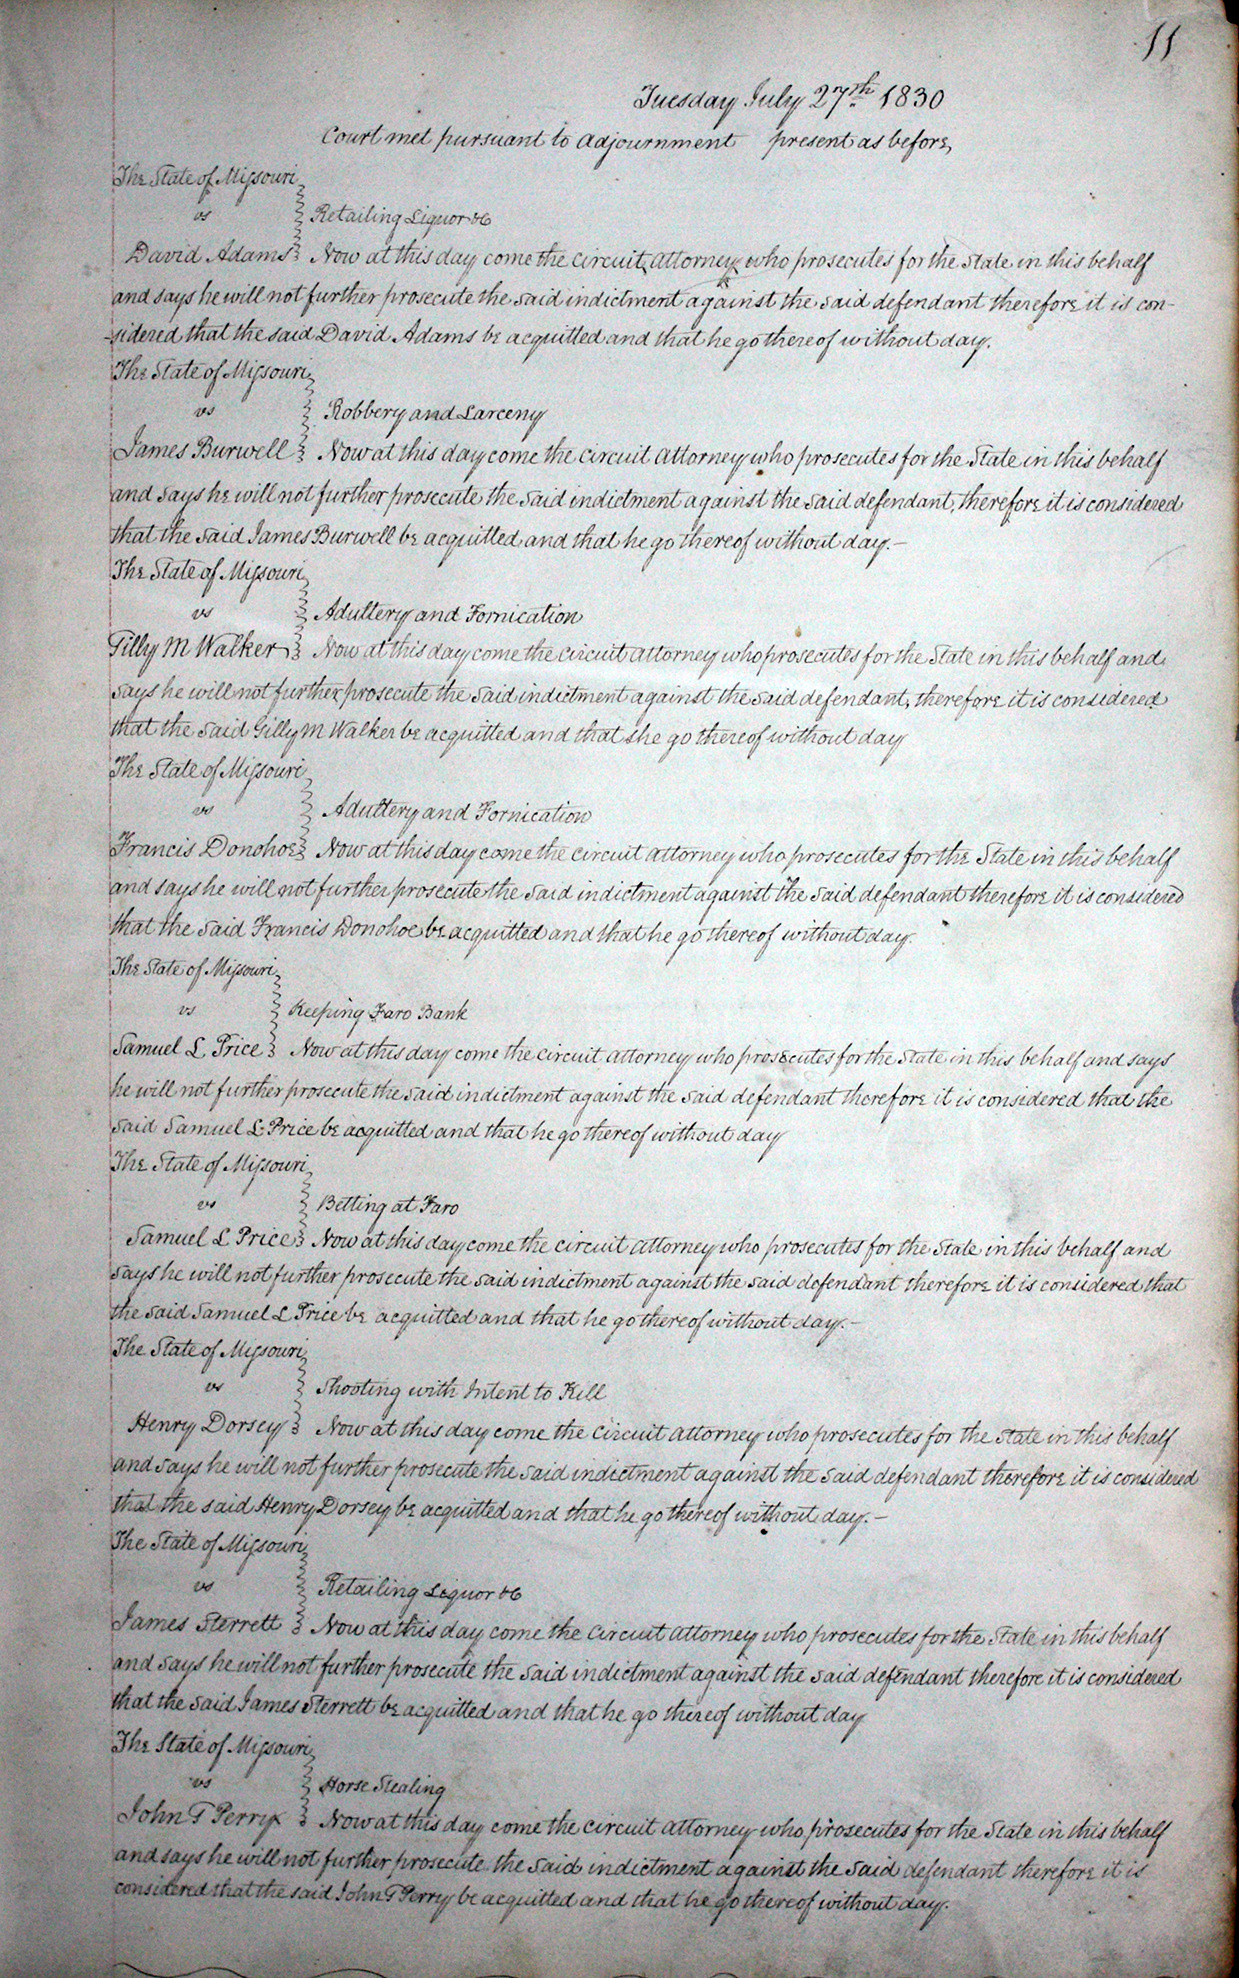 11
Tuesday July 27th 1830
Court met pursuant to adjournment present as before,
The State of Missouri
vs
Retailing Liquor &c
David Adams Now at this day come the circuit attorney who prosecutes for the State in this behalf
and says he will not further prosecute the said indictment against the said defendant therefore it is con-
-sidered that the said David Adams be acquitted and that he go thereof without day.
The State of Missouri
vs
Robbery and Larceny
James Burwell Now at this day come the circuit attorney who prosecutes for the State in this behalf
and says he will not further prosecute the said indictment against the said defendant, therefore it is considered
that the said James Burwell be acquitted and that he go thereof without day.—
The State of Missouri
vs
Adultery and Fornication
Gilly M Walker Now at this day come the circuit attorney who prosecutes for the State in this behalf and
says he will not further prosecute the said indictment against the said defendant, therefore it is considered
that the said Gilly M Walker be acquitted and that she go thereof without day
The State of Missouri
vs
Adultery and Fornication
Francis Donohoe Now at this day come the circuit attorney who prosecutes for the State in this behalf
and says he will not further prosecute the said indictment against the said defendant therefore it is considered
that the said Francis Donohoe be acquitted and that he go thereof without day.
The State of Missouri
vs
Keeping Faro Bank
Samuel L Price Now at this day come the circuit attorney who prosecutes for the State in this behalf and says
he will not further prosecute the said indictment against the said defendant therefore it is considered that the
said Samuel L Price be acquitted and that he go thereof without day
The State of Missouri
vs
Betting at Faro
Samuel L Price Now at this day come the circuit attorney who prosecutes for the State in this behalf and
says he will not further prosecute the said indictment against the said defendant therefore it is considered that
the said Samuel L Price be acquitted and that he go thereof without day.—
The State of Missouri
vs
Shooting with Intent to Kill
Henry Dorsey Now at this day come the circuit attorney who prosecutes for the State in this behalf
and says he will not further prosecute the said indictment against the said defendant therefore it is considered
that the said Henry Dorsey be acquitted and that he go thereof without day.—
The State of Missouri
vs
Retailing Liquor &c
James Sterrett Now at this day come the circuit attorney who prosecutes for the State in this behalf
and says he will not further prosecute the said indictment against the said defendant therefore it is considered
that the said James Sterrett be acquitted and that he go thereof without day
The State of Missouri
vs
Horse Stealing
John T Perry Now at this day come the circuit attorney who prosecutes for the State in this behalf
and says he will not further prosecute the said indictment against the said defendant therefore it is
considered that the said John T Perry be acquitted and that he go thereof without day.